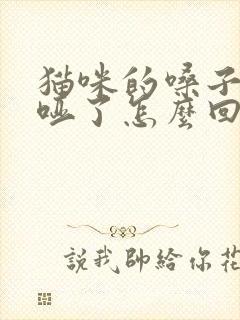 猫咪的嗓子
哑了怎麽回
説我帥給你花